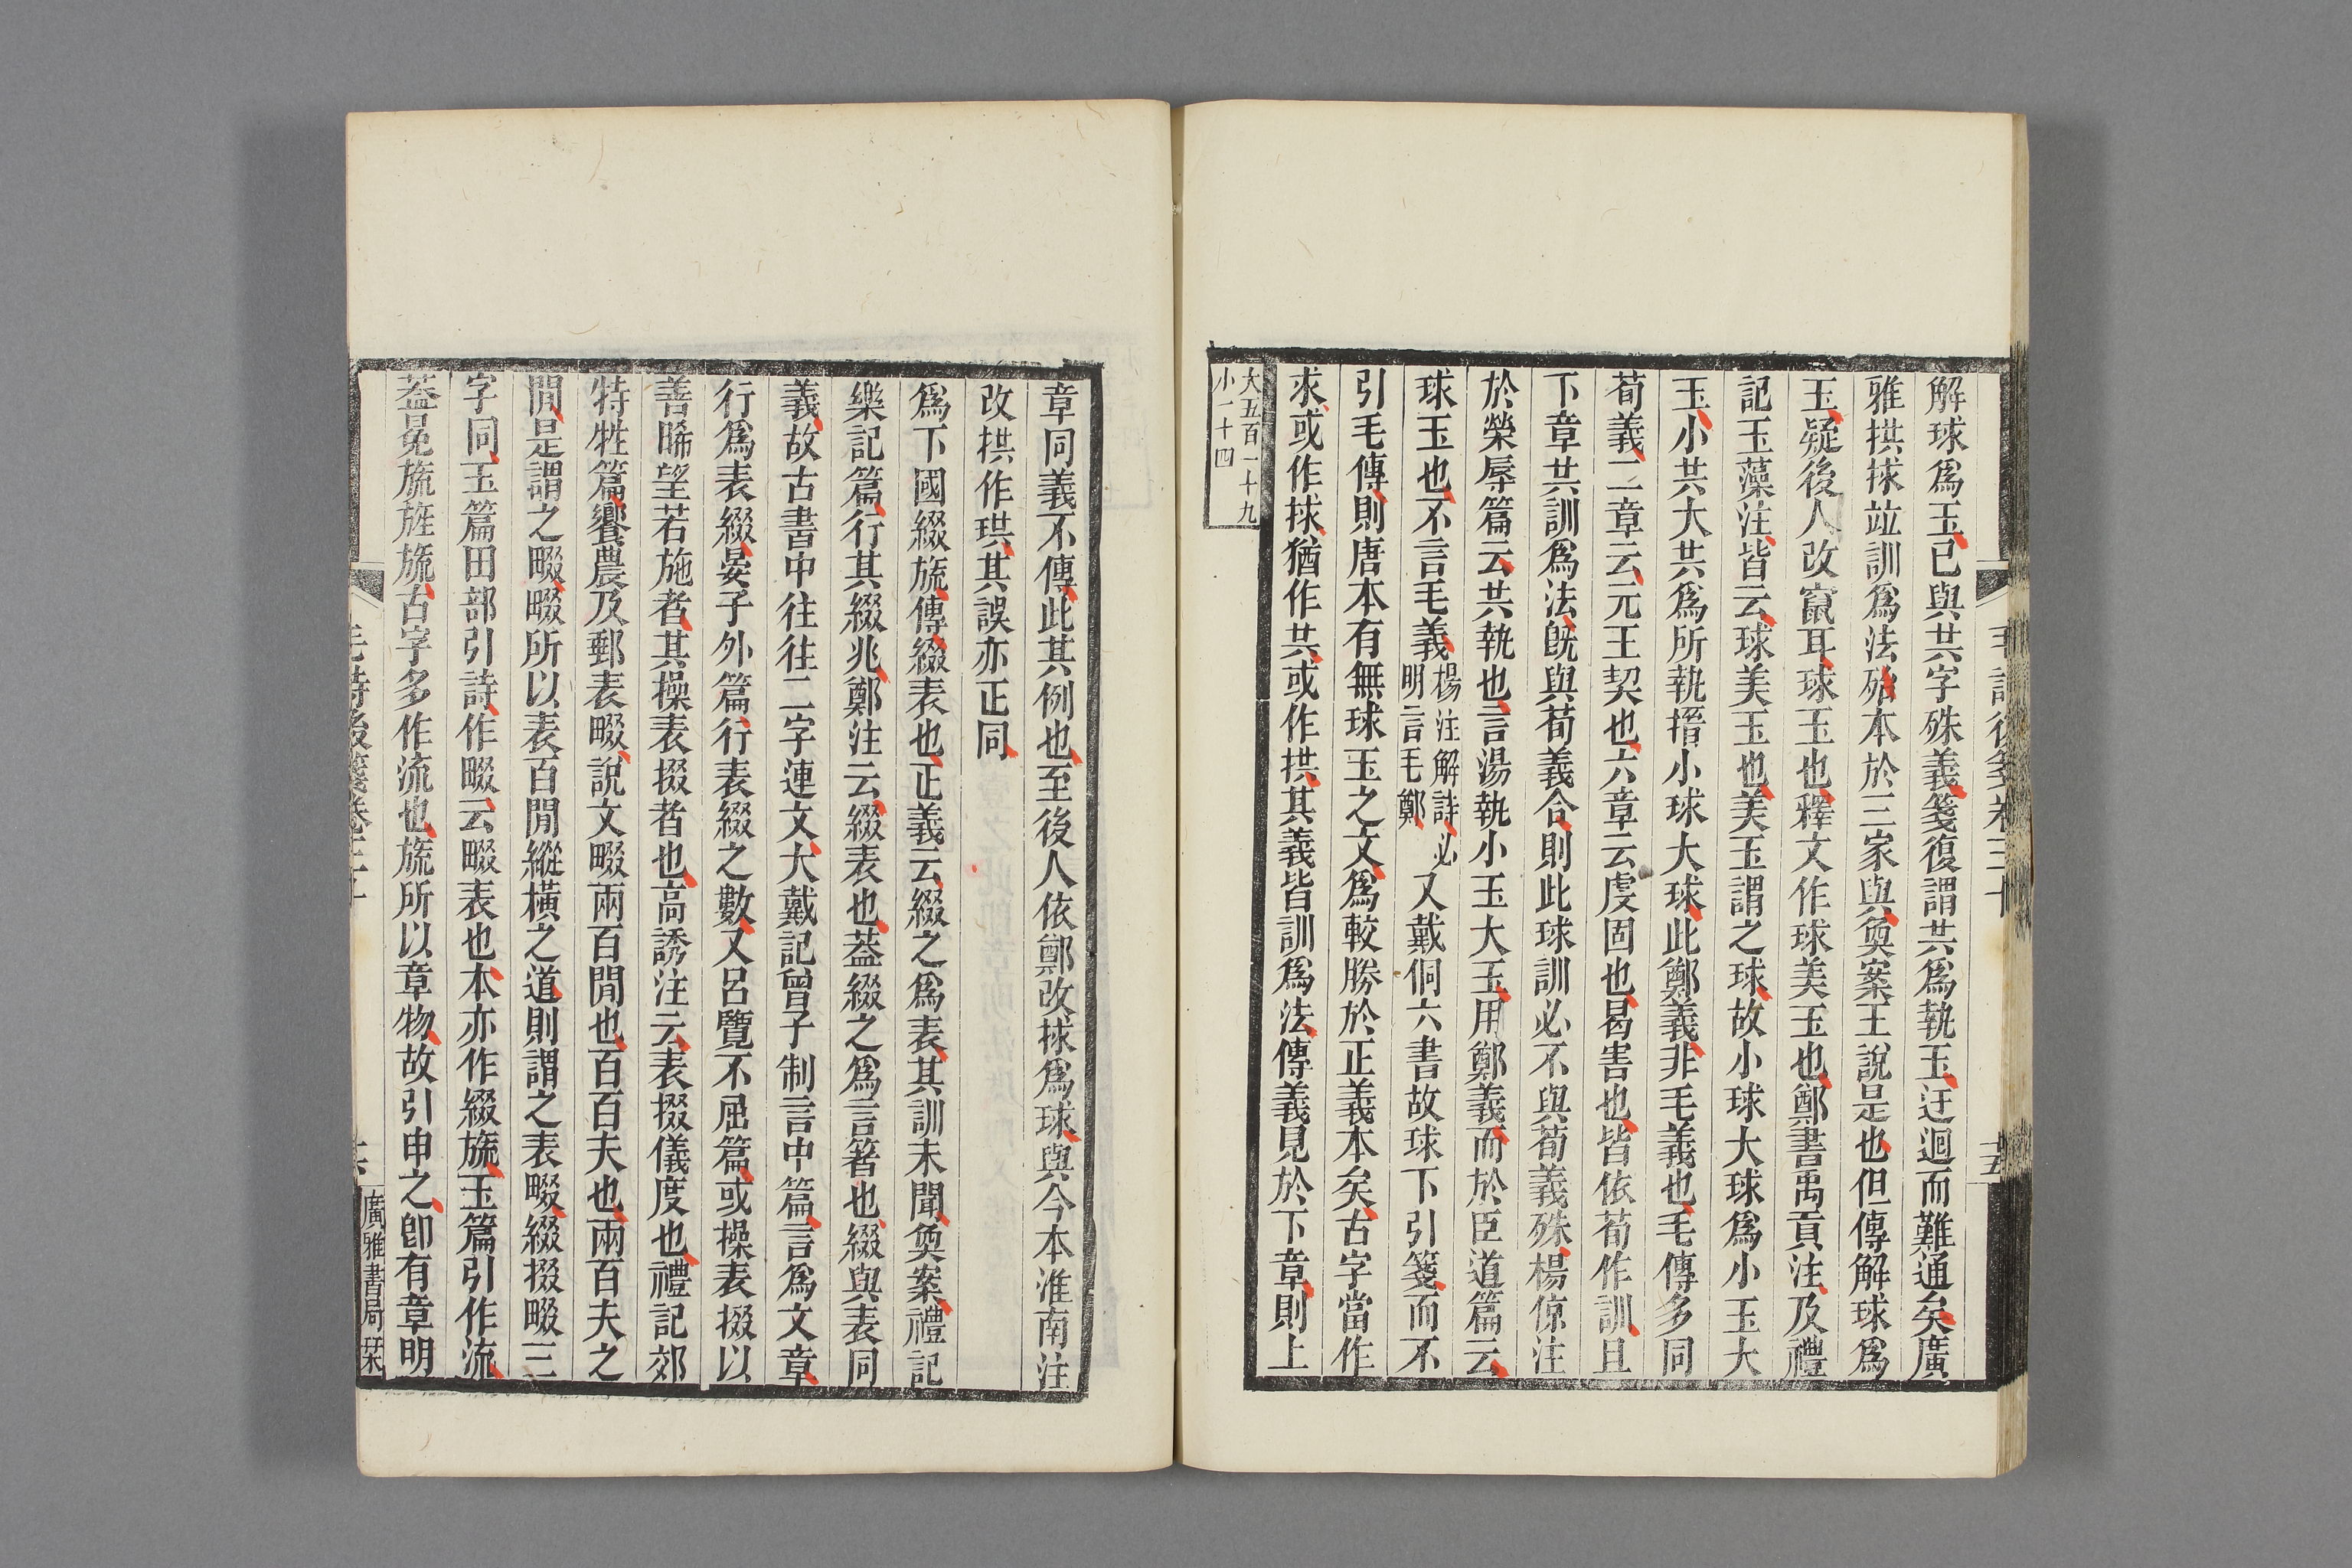 解球爲玉已與共字殊義箋復謂共爲執玉迂迴而難通矣廣
雅拱捄竝訓爲法殆本於三家與奐案王說是也但傳解球爲
玉疑後人改竄耳球玉也釋文作球美玉也鄭書禹貢注及禮
記玉藻注皆云球美玉也美玉謂之球故小球大球爲小玉大
玉小共大共爲所執搢小球大球此鄭義非毛義也毛傳多同
荀義二章云元王契也六章云虔固也曷害也皆依荀作訓且
下章共訓爲法旣與荀義合則此球訓必不與荀義殊楊倞注
於榮辱篇云共執也言湯執小玉大玉用鄭義而於臣道篇云
球玉也不言毛義楊注解詩必明言毛鄭又戴侗六書故球下引箋而不
引毛傳則唐本有無球玉之文爲較勝於正義本矣古字當作
求或作捄猶作共或作拱其義皆訓爲法傳義見於下章則上
大五百一十九
小一十四
章同義不傳此其例也至後人依鄭改捄爲球與今本淮南注
改拱作珙其誤亦正同
爲下國綴旒傳綴表也正義云綴之爲表其訓未聞奐案禮記
樂記篇行其綴兆鄭注云綴表也葢綴之爲言箸也綴與表同
義故古書中往往二字連文大戴記曾子制言中篇言爲文章
行爲表綴晏子外篇行表綴之數又呂覽不屈篇或操表掇以
善睎望若施者其操表掇者也高誘注云表掇儀度也禮記郊
特牲篇饗農及郵表畷說文畷兩百閒也百百夫也兩百夫之
閒是謂之畷畷所以表百閒縱橫之道則謂之表畷綴掇畷三
字同玉篇田部引詩作畷云畷表也本亦作綴旒玉篇引作流
葢冕旒旌旒古字多作流也旒所以章物故引申之卽有章明
毛詩後箋卷三十
廣雅書局栞